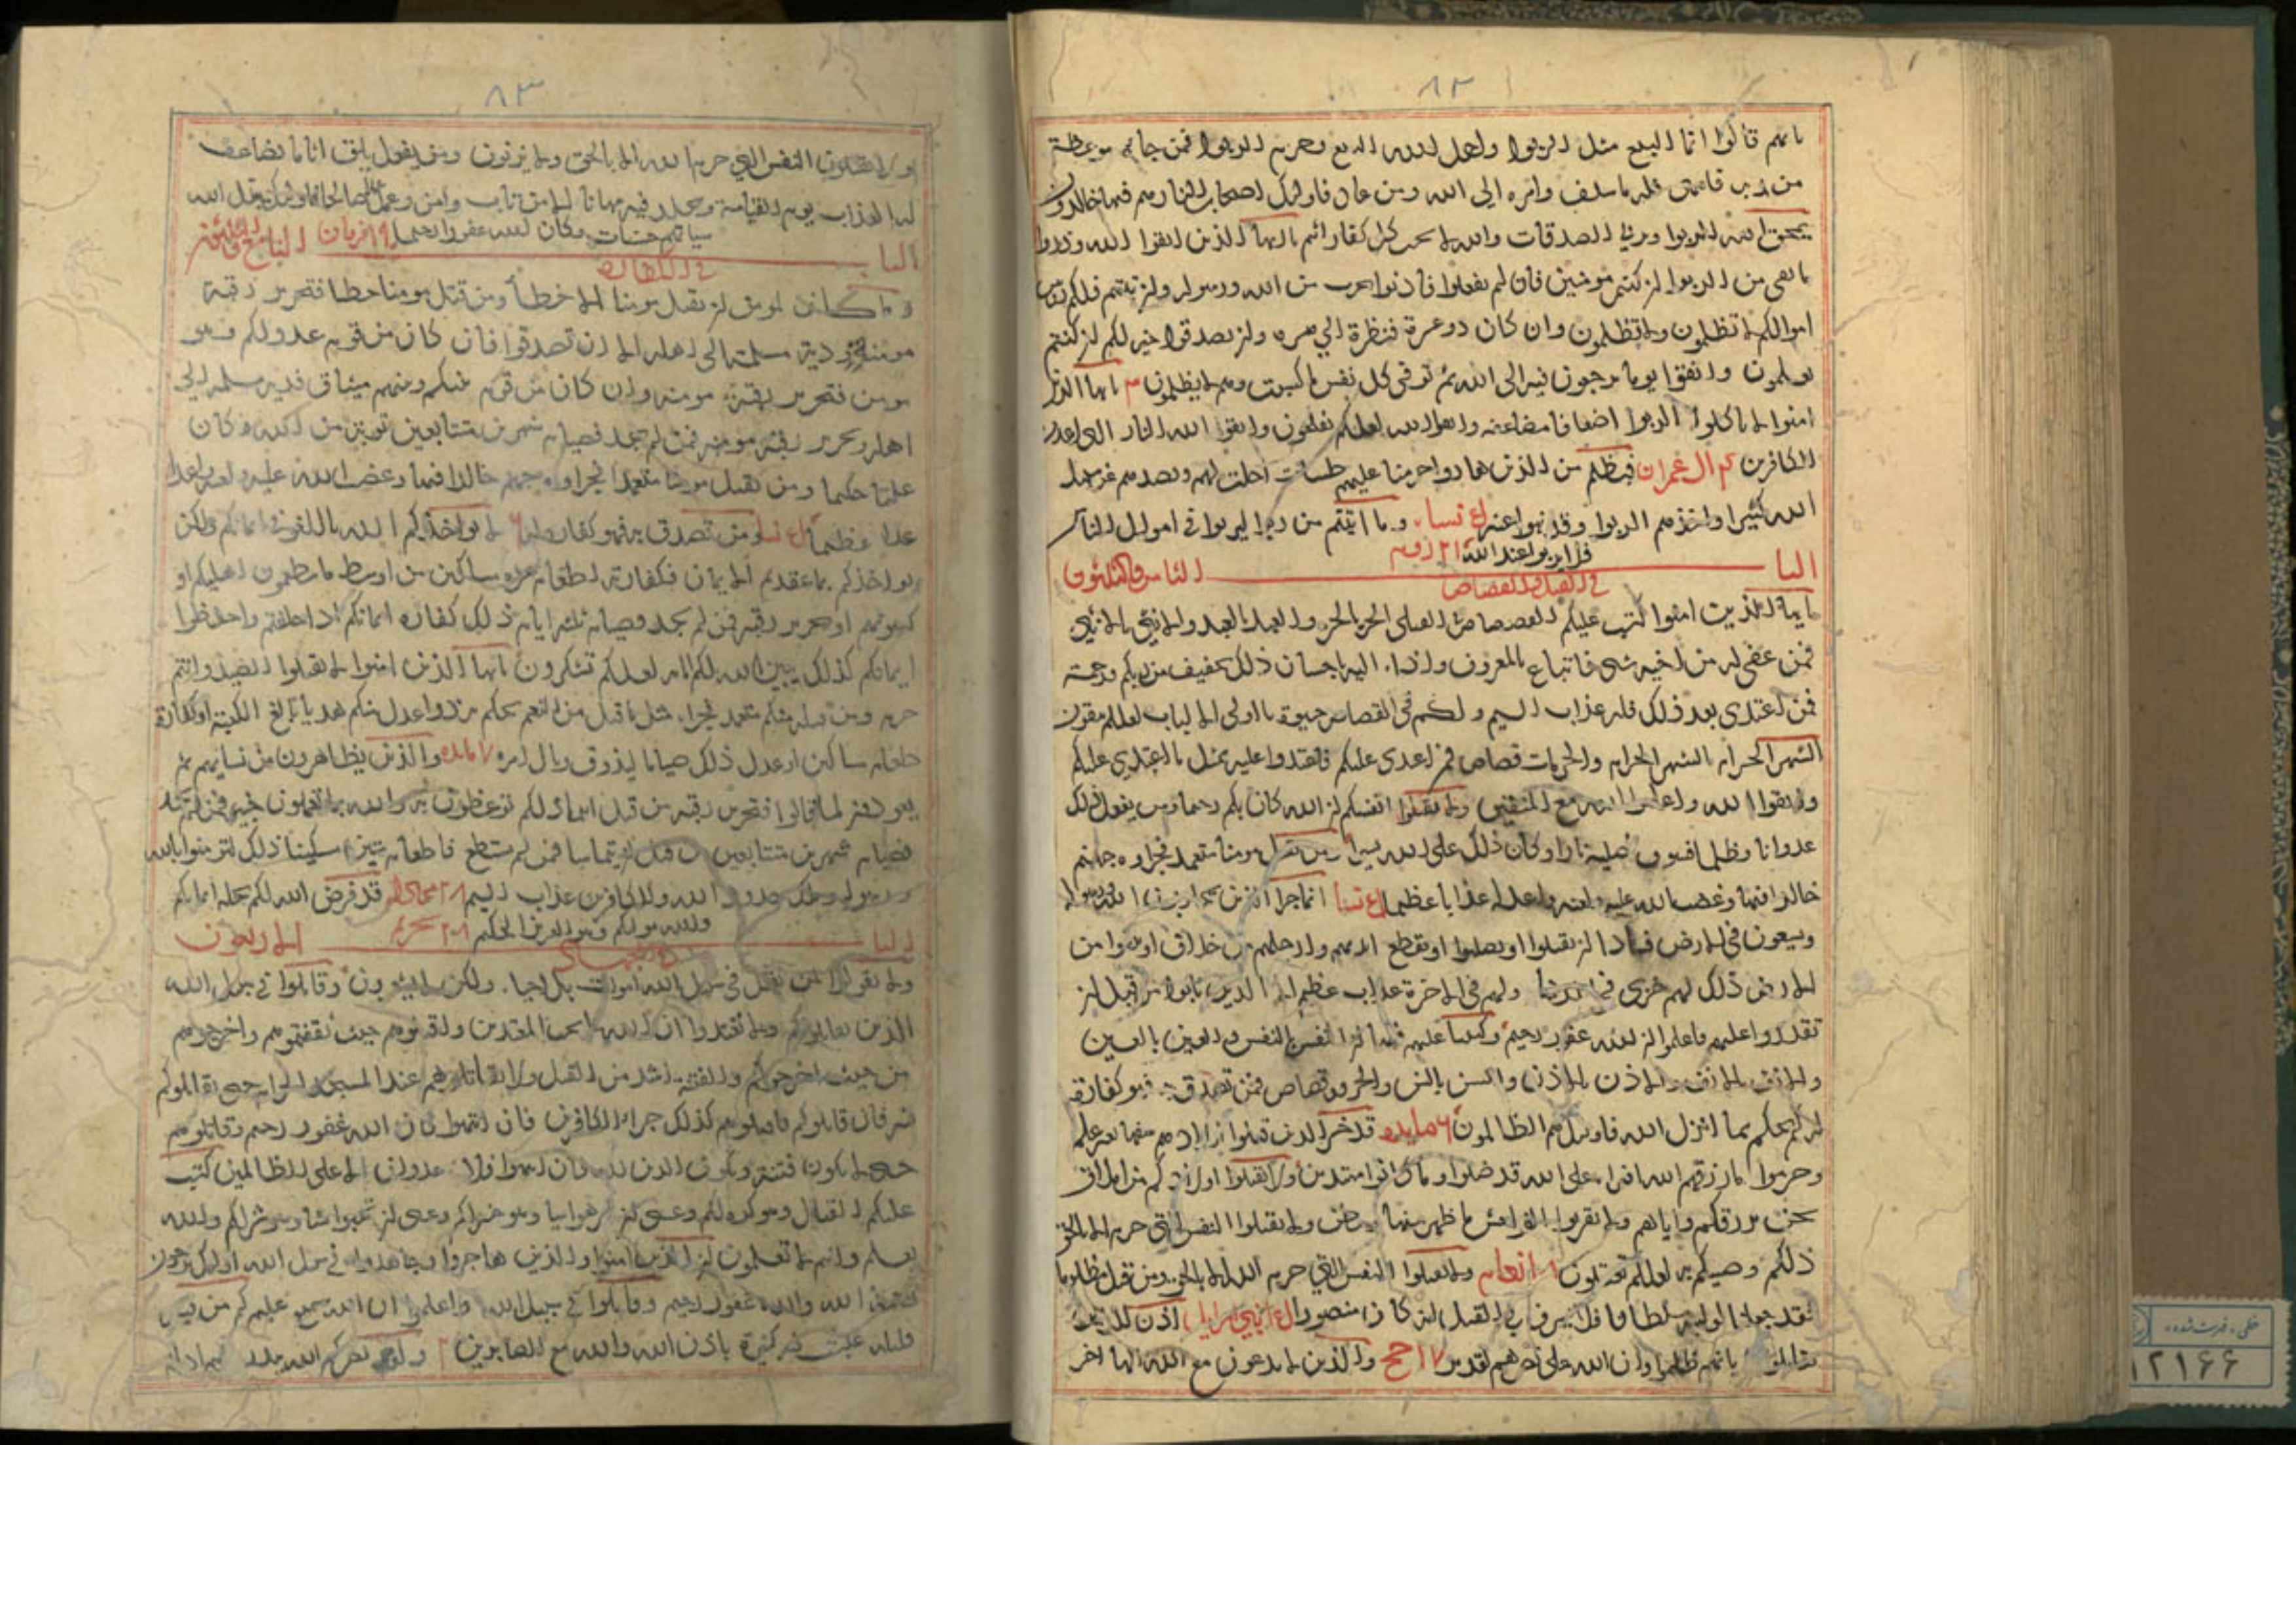 ٨٢
بانهم قالوا انما البيع مثل الربوا واحل الله البيع وحرم الربوا فمن جاءه موعظة
من ربه فانتهى فله ما سلف وامره الى الله ومن عاد فاولئك اصحاب النار هم فيها خالدون
يمحق الله الربوا ويربي الصدقات والله لا يحب كل كفار اثيم يا ايها الذين اتقوا الله وذروا
ما بقي من الربوا ان كنتم مومنين فان لم تفعلوا فأذنوا بحرب من الله ورسوله وان تبتم فلكم
اموالكم لا تظلمون ولا تظلمون وان كان ذو عسرة فنظرة الى ميسره وان تصدقوا خير لكم ان كنتم
تعلمون واتقوا يوما ترجعون فيه الى الله ثم توفى كل نفس ما كسبت وهم لا يظلمون ٣ يا ايها الذين
امنوا لا تاكلوا الربوا اضعافا مضاعفه واتقوا الله لعلكم تفلحون واتقوا النار التي اعدت
للكافرين ٤ ال عمران فبظلم من الذين هادوا حرمنا عليهم طيبات احلت لهم وبصدهم عن سبيل
الله كثيرا واخذهم الربوا وقد نهوا عنه نسا وما اتيتم من ربوا ليربوا في اموال الناس
فلا يربوا عند الله ٢١ روم
البا الثامن والثلثون
في القتل والقصاص
يا ايها الذين امنوا كتب عليكم القصاص في القتلى الحر بالحر والعبد بالعبد والانثى بالانثى
فمن عفى له من اخيه شئ فاتباع بالمعروف واداء اليه باحسان ذلك تخفيف من ربكم ورحمة
فمن اعتدى بعد ذلك فله عذاب اليم ولكم في القصاص حيوة يا اولى الالباب لعلكم تتقون
الشهر الحرام بالشهر الحرام والحرمات قصاص فمن اعتدى عليكم فاعتدوا عليه بمثل ما اعتدى عليكم
واتقوا الله واعلموا ان الله مع المتقين ولا تقتلوا انفسكم ان الله كان بكم رحيما ومن يفعل ذلك
عدوانا وظلما فسوف نصليه نارا وكان ذلك على الله يسيرا ومن يقتل مومنا متعمدا فجزاوه جهنم
خالدا فيها وغضب الله عليه ولعنه واعد له عذابا عظيما نسا انما جزا الذين يحاربون الله ورسوله
ويسعون في الارض فسادا ان يقتلوا او يصلبوا او تقطع ايديهم وارجلهم من خلاف او ينفوا من
الارض ذلك لهم خزى في الدنيا ولهم في الاخرة عذاب عظيم الا الذين تابوا من قبل ان
تقدروا عليهم فاعلموا ان الله غفور رحيم وكتبنا عليهم فيها ان النفس بالنفس والعين بالعين
والانف بالانف والاذن بالاذن والسن بالسن والجروح قصاص فمن تصدق به فهو كفارة له
لم يحكم بما انزل الله فاولئك هم الظالمون ٦ مايده قد خسر الذين قتلوا اولادهم سفها بغير علم
وحرموا ما رزقهم الله افتراء على الله قد ضلوا وما كانوا مهتدين ولا تقتلوا اولادكم من املاق
نحن نرزقكم واياهم ولا تقربوا الفواحش ما ظهر منها وما بطن ولا تقتلوا النفس التي حرم الله الا بالحق
ذلكم وصيكم به لعلكم تعقلون ٨ انعام ولا تقتلوا النفس التي حرم الله الا بالحق ومن قتل مظلوما
فقد جعلنا لوليه سلطانا فلا يسرف في القتل انه كان منصورا بني اسرايل اذن للذين
يقاتلون بانهم ظلموا وان الله على نصرهم لقدير ١٧ حج والذين لا يدعون مع الله الها اخر
٨٣
ولا يقتلون النفس التي حرم الله الا بالحق ولا يزنون ومن يفعل يلق اثاما يضاعف
له العذاب يوم القيامة ويخلد فيه مهانا الا من تاب وامن وعمل عملا صالحا فاولئك يبدل الله
سياتهم حسنات وكان الله غفورا رحيما ١٩ فرقان
البا التاسع والثلثون
في الكفارة
وما كان لمومن ان يقتل مومنا الا خطأ ومن قتل مومنا خطا فتحرير رقبة
مومنة ودية مسلمة الى اهله الا ان تصدقوا فان كان من قوم عدو لكم وهو
مومن فتحرير رقبة مومنه وان كان من قوم بينكم وبينهم ميثاق فدية مسلمة الى
اهله وتحرير رقبة مومنه فمن لم يجد فصيام شهرين متتابعين توبة من الله وكان
عليما حكيما ومن يقتل مومنا متعمدا فجزاوه جهنم خالدا فيها وغضب الله عليه ولعنه واعد
عذابا عظيما نسا ومن تصدق به فهو كفارة له ٦ لا يواخذكم الله باللغو في ايمانكم ولكن
يواخذكم بما عقدتم الايمان فكفارته اطعام عشرة مساكين من اوسط ما تطعمون اهليكم او
كسوتهم او تحرير رقبة فمن لم يجد فصيام ثلثة ايام ذلك كفارة ايمانكم اذا حلفتم واحفظوا
ايمانكم كذلك يبين الله لكم اياته لعلكم تشكرون يا ايها الذين امنوا لا تقتلوا الصيد وانتم
حرم ومن قتله منكم متعمدا فجزاء مثل ما قتل من النعم يحكم به ذوا عدل منكم هديا بالغ الكعبة او كفارة
طعام مساكين او عدل ذلك صياما ليذوق وبال امره ٧ مايده والذين يظاهرون من نسايهم ثم
يعودون لما قالوا فتحرير رقبة من قبل ان يتماسا ذلكم توعظون به والله بما تعملون خبير فمن لم يجد
فصيام شهرين متتابعين من قبل ان يتماسا فمن لم يستطع فاطعام ستين مسكينا ذلك لتومنوا بالله
ورسوله وتلك حدود الله وللكافرين عذاب اليم ٢٨ مجادله قد فرض الله لكم تحلة ايمانكم
والله موليكم وهو العزيز الحكيم ٢٨ تحريم
البا الاربعون
في الجهاد
ولا تقولوا لمن يقتل في سبيل الله اموات بل احيا ولكن لا تشعرون وقاتلوا في سبيل الله
الذين يقاتلونكم ولا تعتدوا ان الله لا يحب المعتدين واقتلوهم حيث ثقفتموهم واخرجوهم
من حيث اخرجوكم والفتنة اشد من القتل ولا تقاتلوهم عند المسجد الحرام حتى يقاتلوكم
فيه فان قاتلوكم فاقتلوهم كذلك جزاء الكافرين فان انتهوا فان الله غفور رحيم وقاتلوهم
حتى لا تكون فتنة ويكون الدين لله فان انتهوا فلا عدوان الا على الظالمين كتب
عليكم القتال وهو كره لكم وعسى ان تكرهوا شيا وهو خير لكم وعسى ان تحبوا شيا وهو شر لكم والله
يعلم وانتم لا تعلمون ان الذين امنوا والذين هاجروا وجاهدوا في سبيل الله اولئك يرجون
رحمة الله والله غفور رحيم وقاتلوا في سبيل الله واعلموا ان الله سميع عليم كم من فئة
قليلة غلبت فئة كثيرة باذن الله والله مع الصابرين ولقد نصركم الله ببدر وانتم اذلة
خطى، فهرست شده
١٢١٦٦